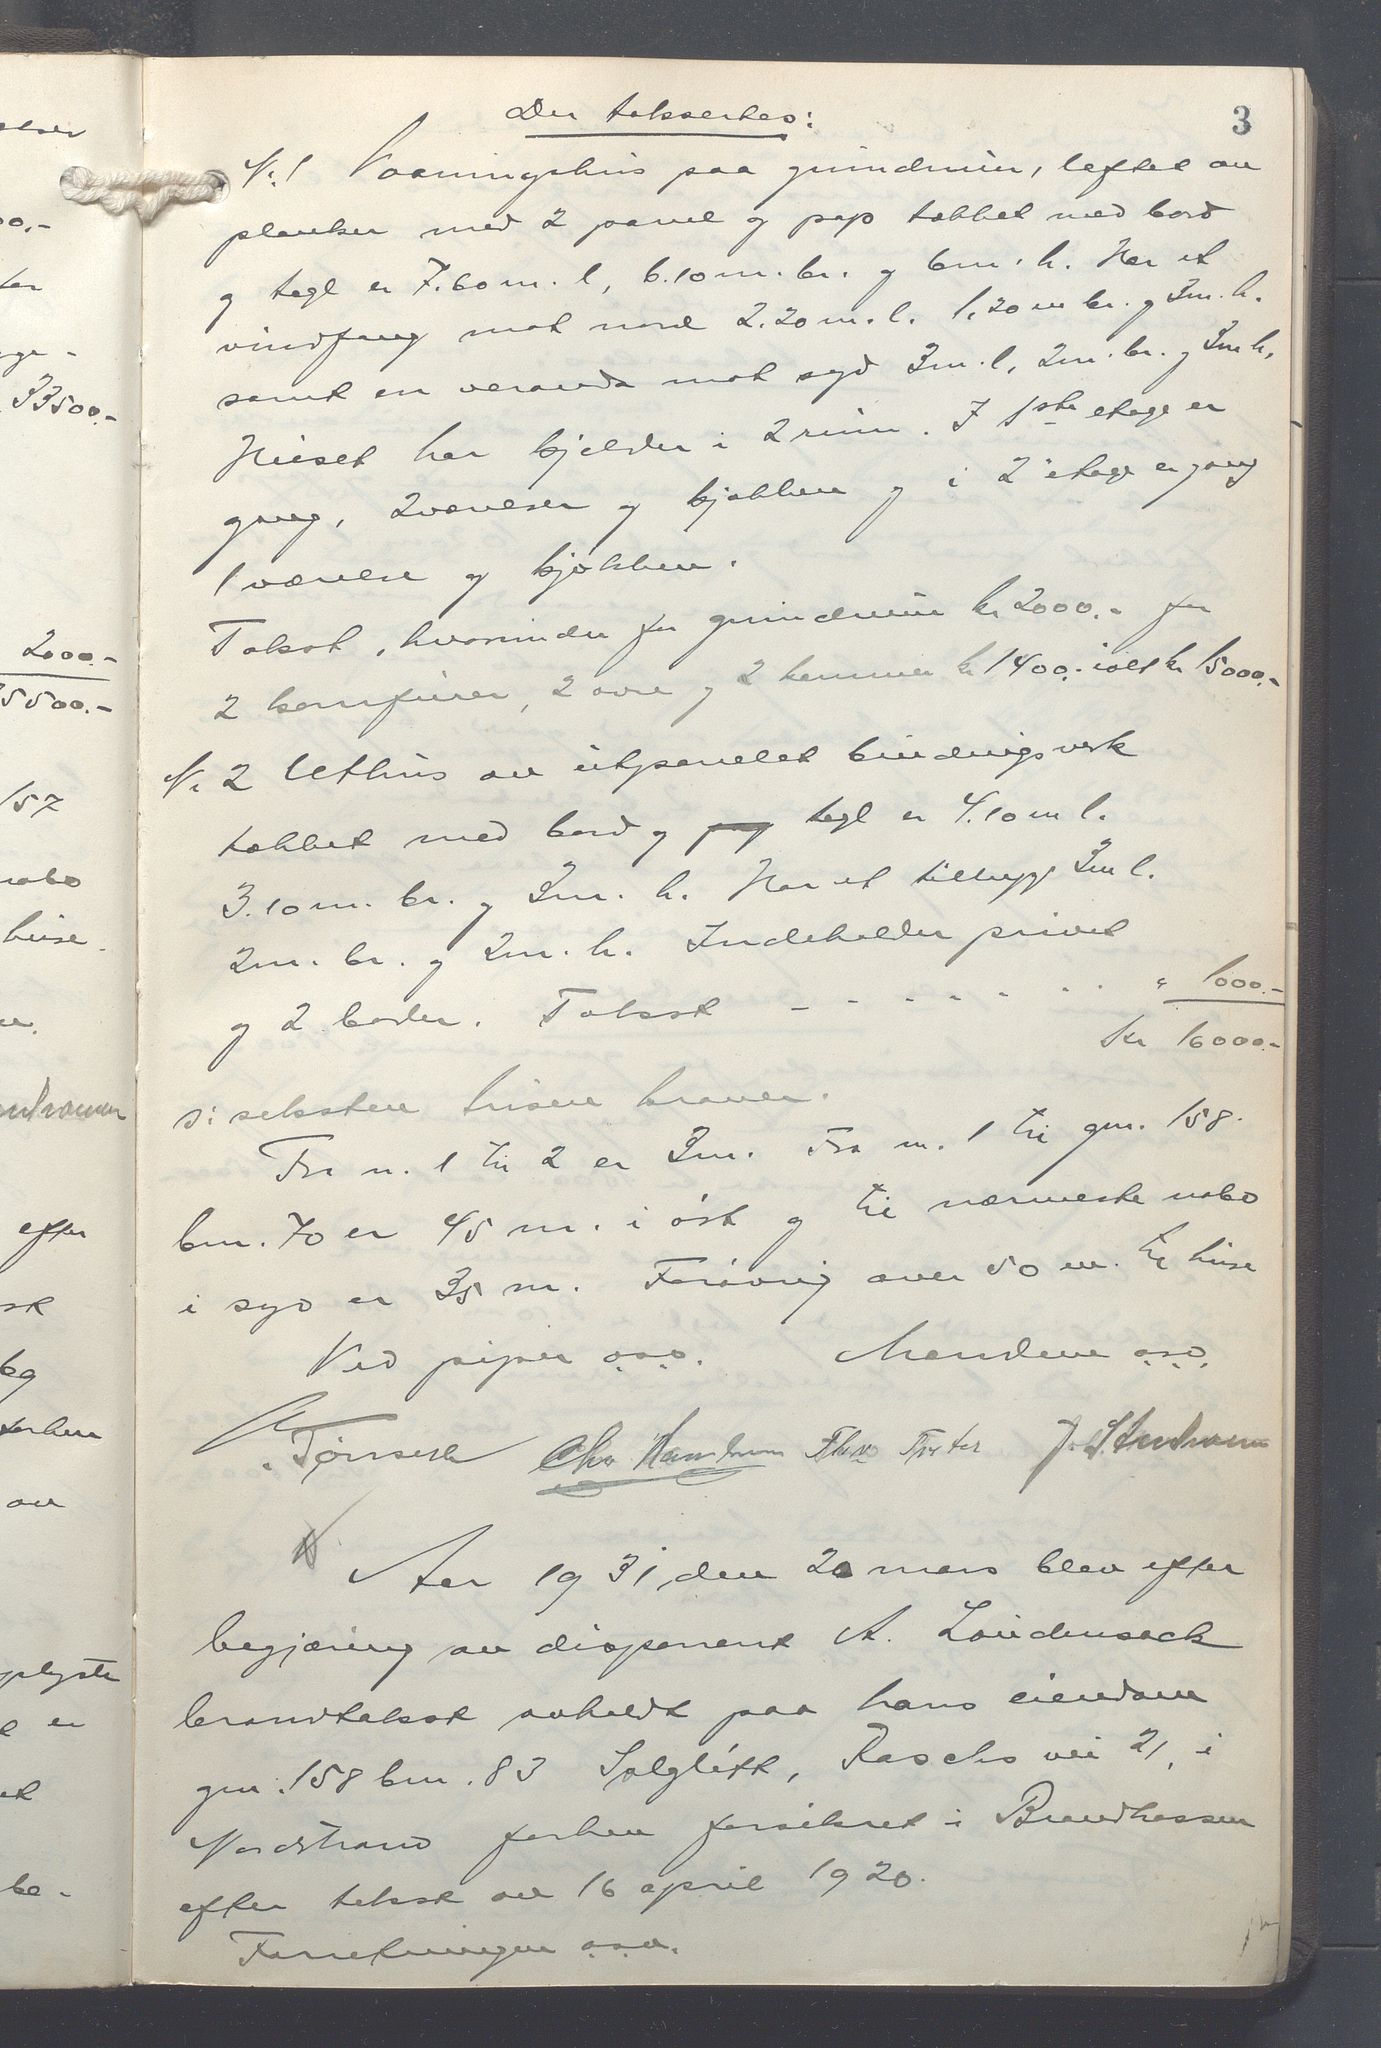 3
Der taksertes:
N. 1 Vaaningshus paa grundmur, laftet av
planker med 2 panel og pap tækket med bord
og tegl er 7.60 m. l, 6.10 m. br. og 6 m. h. Har et
vindfang mot nord 2.20 m. l. 1.20 m br. og 3 m. h.
samt en veranda mot syd 3 m. l, 2 m. br. og 3 m h.
Huset har kjelder i 2 rum. I 1ste etage er
gang, 2 værelser og kjøkken og i 2 etage er gang
1 værelse og kjøkken.
Takst, hvorunder for grundmur kr 2000.- for
2 komfurer, 2 ovne og 2 kammer kr 1400.- ialt kr 15000.-
N. 2 Uthus av utpanelet bindingsverk
tækket med bord og pap tegl er 4.10 m l.
3.10 m. br. og 3 m. h. Har et tilbygg 3 m l.
2 m. br. og 2 m. h. Indeholder privet
og 2 boder. Takst - - - - - - - " 1000.-
Kr 16000.-
s: seksten tusen kroner.
Fra n. 1 til 2 er 3 m. Fra n. 1 til gm. 158.
bm. 70 er 45 m. i øst og til nærmeste nabo
i syd er 35 m. Forøvrig over 50 m. til huse
Ved piper o.s.v. Mændene o.s.v.
Tønseth Chr Hambro Thv J. S. Andersen
Aar 1931 den 20 mars blev efter
begjæring av disponent A. Loudensack
brandtakst avholdt paa hans eiendom
gm. 158 bm. 83 Solglött, Raschs vei 21, i
Nordstrand forhen forsikret i Brandkassen
efter takst av 16 april 1920.
Forretningen o.s.v.
33500.-
2000.-
5500.-
157
nabo
huse.
efter
av
er
be-